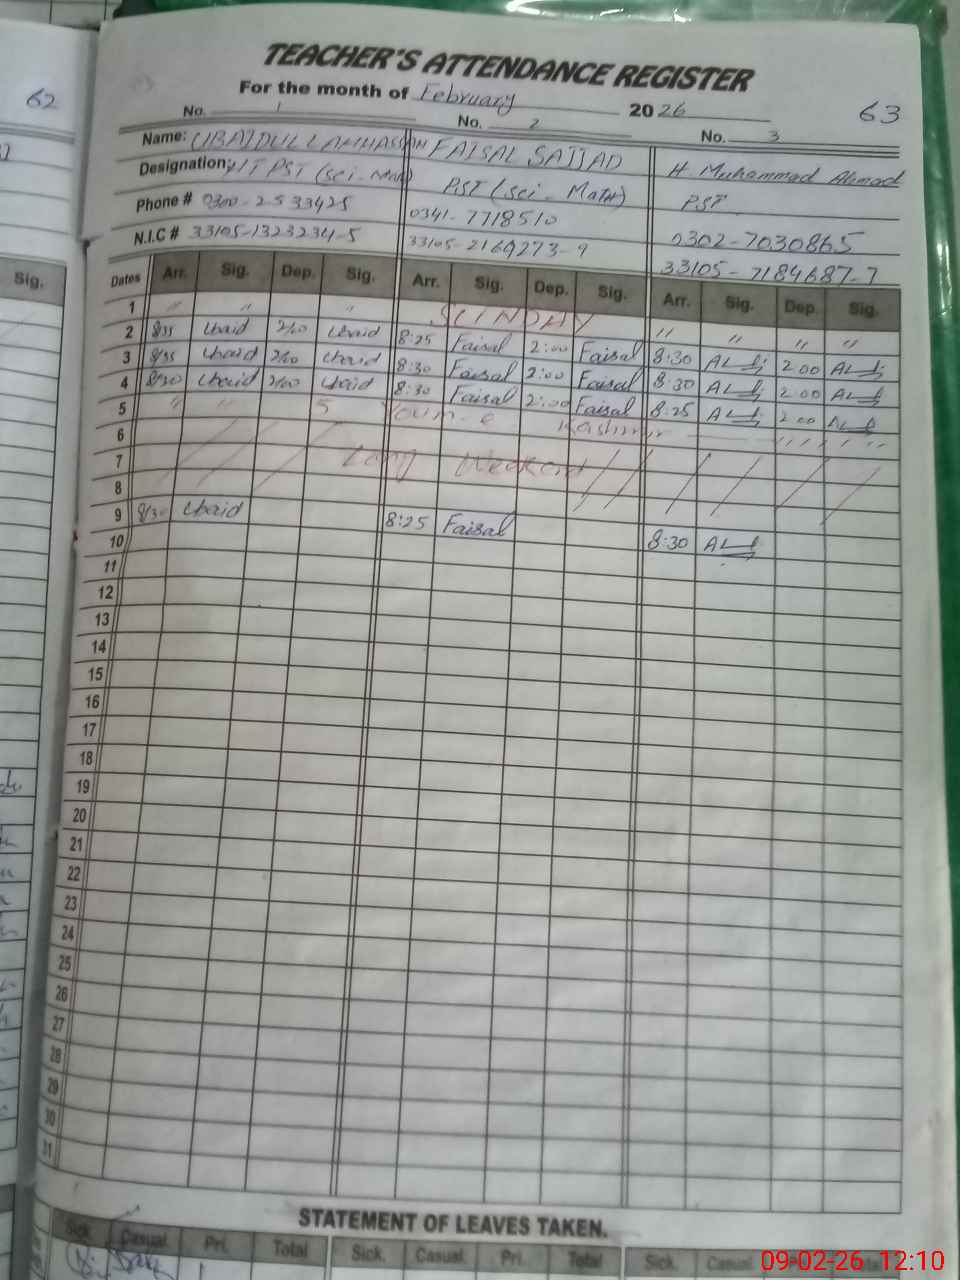 62
TEACHER'S ATTENDANCE REGISTER
For the month of February 2026 63
No. 1 No. 2 No. 3
Name: UBAIDULLAH HASSAN FAISAL SAJJAD H. Muhammad Ahmad
Designation: PST (Sci - Math) PST (Sci - Math) PST
Phone # 0300-2533425 0341-7718510 0302-7030865
N.I.C # 33105-1323234-5 33105-2169273-9 33105-7184687-7
Sig.
Dates Arr. Sig. Dep. Sig. Arr. Sig. Dep. Sig. Arr. Sig. Dep. Sig.
1 " " " SUNDAY " " " "
2 8/35 Ubaid 2/00 Ubaid 8:25 Faisal 2:00 Faisal 8:30 2:00
3 8/35 Ubaid 2/00 Ubaid 8:30 Faisal 2:00 Faisal 8:30 2:00
4 8/30 Ubaid 2/00 Ubaid 8:30 Faisal 2:00 Faisal 8:25 2:00
5 " " 5 Youm-e Kashmir " " " "
6
7 Long Weekend
8
9 8/30 Ubaid 8:25 Faisal 8:30
10
11
12
13
14
15
16
17
18
19
20
21
22
23
24
25
26
27
28
29
30
31
STATEMENT OF LEAVES TAKEN.
Sick. Casual Pri. Total Sick. Casual Pri. Total Sick. Casual
09-02-26 12:10